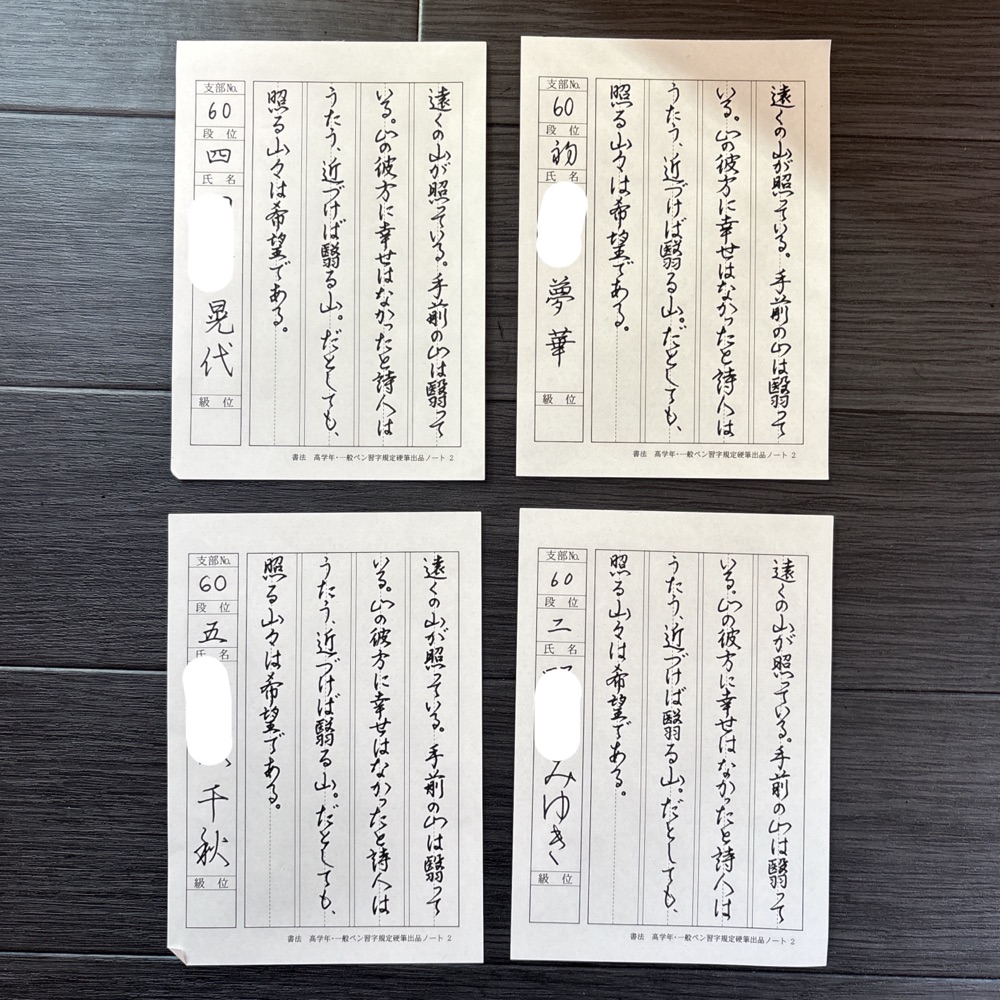 遠くの山が照っている。手前の山は翳って
いる。山の彼方に幸せはなかったと詩人は
うたう、近づけば翳る山。だとしても、
照る山々は希望である。
支部No.
60
段位
四
氏名
晃代
級位
書法 高学年・一般ペン習字規定硬筆出品ノート 2
遠くの山が照っている。手前の山は翳って
いる。山の彼方に幸せはなかったと詩人は
うたう、近づけば翳る山。だとしても、
照る山々は希望である。
支部No.
60
段位
初
氏名
夢華
級位
書法 高学年・一般ペン習字規定硬筆出品ノート 2
遠くの山が照っている。手前の山は翳って
いる。山の彼方に幸せはなかったと詩人は
うたう、近づけば翳る山。だとしても、
照る山々は希望である。
支部No.
60
段位
五
氏名
千秋
級位
書法 高学年・一般ペン習字規定硬筆出品ノート 2
遠くの山が照っている。手前の山は翳って
いる。山の彼方に幸せはなかったと詩人は
うたう、近づけば翳る山。だとしても、
照る山々は希望である。
支部No.
60
段位
二
氏名
みゆき
級位
書法 高学年・一般ペン習字規定硬筆出品ノート 2